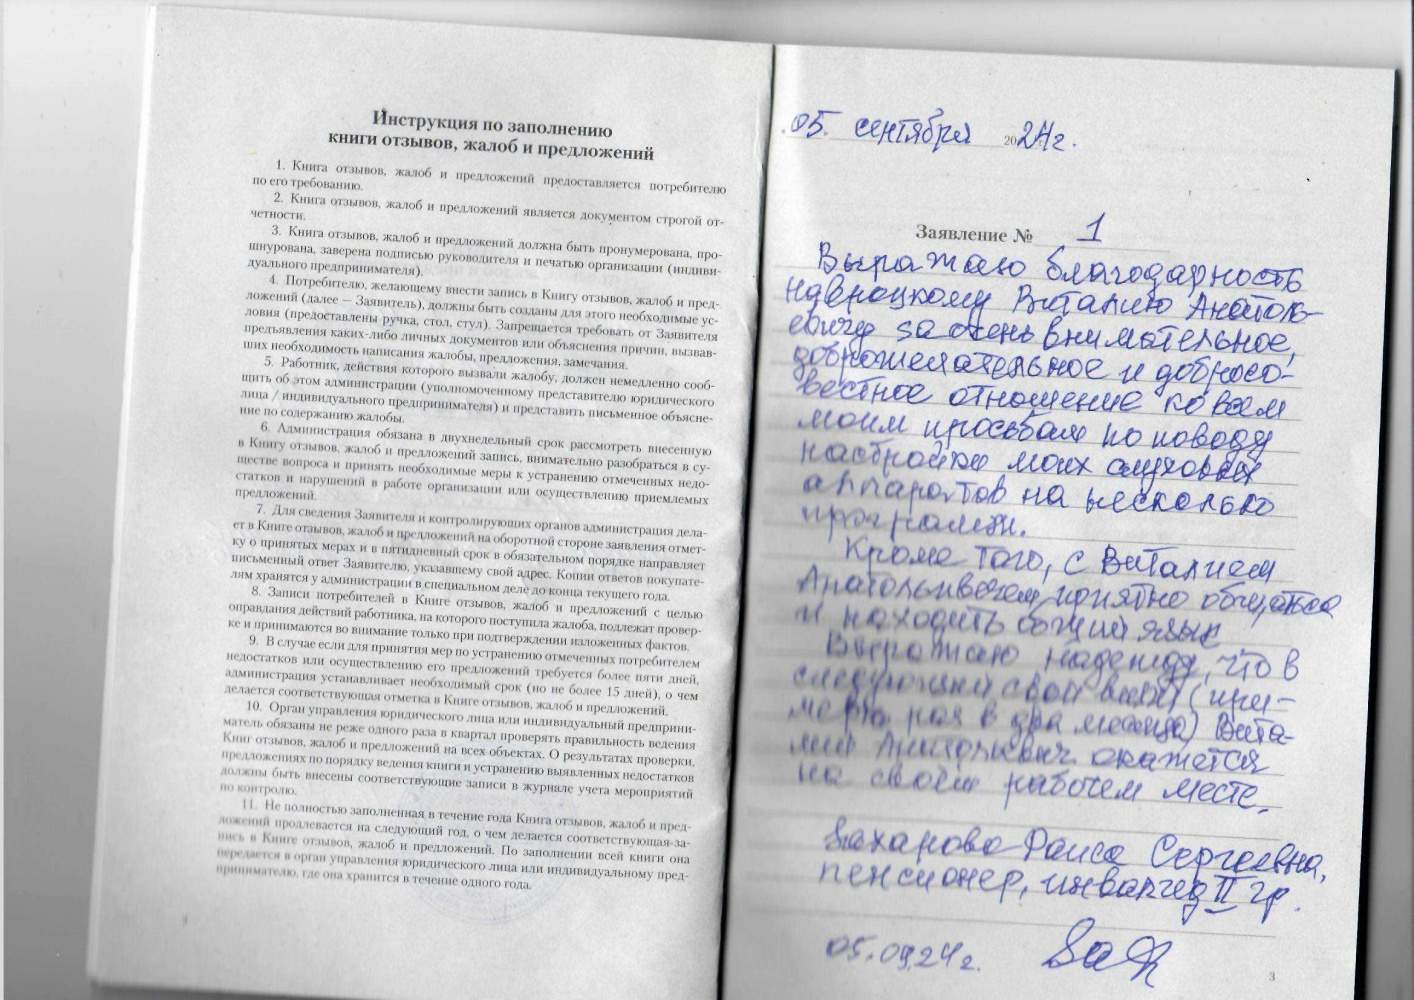 Инструкция по заполнению
книги отзывов, жалоб и предложений
1. Книга отзывов, жалоб и предложений предоставляется потребителю
по его требованию.
2. Книга отзывов, жалоб и предложений является документом строгой от-
четности.
3. Книга отзывов, жалоб и предложений должна быть пронумерована, про-
шнурована, заверена подписью руководителя и печатью организации (индиви-
дуального предпринимателя).
4. Потребителю, желающему внести запись в Книгу отзывов, жалоб и пред-
ложений (далее — Заявитель), должны быть созданы для этого необходимые ус-
ловия (предоставлены ручка, стол, стул). Запрещается требовать от Заявителя
предъявления каких-либо личных документов или объяснения причин, вызвав-
ших необходимость написания жалобы, предложения, замечания.
5. Работник, действия которого вызвали жалобу, должен немедленно сооб-
щить об этом администрации (уполномоченному представителю юридического
лица / индивидуального предпринимателя) и представить письменное объясне-
ние по содержанию жалобы.
6. Администрация обязана в двухнедельный срок рассмотреть внесенную
в Книгу отзывов, жалоб и предложений запись, внимательно разобраться в су-
ществе вопроса и принять необходимые меры к устранению отмеченных недо-
статков и нарушений в работе организации или осуществлению приемлемых
предложений.
7. Для сведения Заявителя и контролирующих органов администрация дела-
ет в Книге отзывов, жалоб и предложений на оборотной стороне заявления отмет-
ку о принятых мерах и в пятидневный срок в обязательном порядке направляет
письменный ответ Заявителю, указавшему свой адрес. Копии ответов покупате-
лям хранятся у администрации в специальном деле до конца текущего года.
8. Записи потребителей в Книге отзывов, жалоб и предложений с целью
оправдания действий работника, на которого поступила жалоба, подлежат провер-
ке и принимаются во внимание только при подтверждении изложенных фактов.
9. В случае если для принятия мер по устранению отмеченных потребителем
недостатков или осуществлению его предложений требуется более пяти дней,
администрация устанавливает необходимый срок (но не более 15 дней), о чем
делается соответствующая отметка в Книге отзывов, жалоб и предложений.
10. Орган управления юридического лица или индивидуальный предприни-
матель обязаны не реже одного раза в квартал проверять правильность ведения
Книг отзывов, жалоб и предложений на всех объектах. О результатах проверки,
предложениях по порядку ведения книги и устранению выявленных недостатков
должны быть внесены соответствующие записи в журнале учета мероприятий
по контролю.
11. Не полностью заполненная в течение года Книга отзывов, жалоб и пред-
ложений продлевается на следующий год, о чем делается соответствующая за-
пись в Книге отзывов, жалоб и предложений. По заполнении всей книги она
передается в орган управления юридического лица или индивидуальному пред-
принимателю, где она хранится в течение одного года.
05. сентября 2024 г.
Заявление № 1
Выражаю благодарность
Навроцкому Виталию Анатоль-
евичу за очень внимательное,
доброжелательное и добросо-
вестное отношение ко всем
моим просьбам по поводу
настройки моих слуховых
аппаратов на несколько
программ.
Кроме того, с Виталием
Анатольевичем приятно общаться
и находить общий язык
Выражаю надежду, что в
следующий свой визит (при-
мерно раз в два месяца) Вита-
лий Анатольевич окажется
на своем рабочем месте.
Захарова Раиса Сергеевна,
пенсионер, инвалид II гр.
05.09.24 г. Зах
3